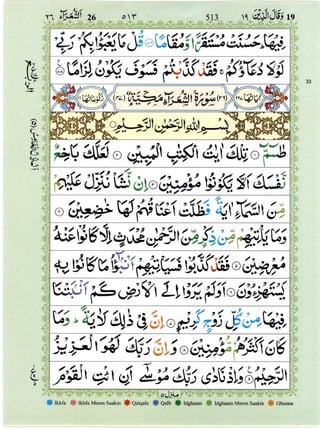 ٢٦ الشُّعَرَآء 26 ٥١٣ 513 ١٩ وَقَالَ الَّذِيْنَ 19
فِيْهَا ؕ حَسُنَتْ مُسْتَقَرًّا وَّمُقَامًا ۞ قُلْ مَا يَعْبَؤُا بِكُمْ رَبِّيْ
لَوْلَا دُعَآؤُكُمْ ۚ فَقَدْ كَذَّبْتُمْ فَسَوْفَ يَكُوْنُ لِزَامًا ۞
اٰيَاتُهَا ٢٢٧ (٢٦) سُوْرَةُ الشُّعَرَآءِ مَكِّيَّةٌ (٤٧) رُكُوْعَاتُهَا ١١
بِسْمِ اللّٰهِ الرَّحْمٰنِ الرَّحِيْمِ
طٰسٓمّٓ ۞ تِلْكَ اٰيٰتُ الْكِتٰبِ الْمُبِيْنِ ۞ لَعَلَّكَ بَاخِعٌ
نَّفْسَكَ اَلَّا يَكُوْنُوْا مُؤْمِنِيْنَ ۞ اِنْ نَّشَاْ نُنَزِّلْ عَلَيْهِمْ
مِّنَ السَّمَآءِ اٰيَةً فَظَلَّتْ اَعْنَاقُهُمْ لَهَا خٰضِعِيْنَ ۞
وَمَا يَاْتِيْهِمْ مِّنْ ذِكْرٍ مِّنَ الرَّحْمٰنِ مُحْدَثٍ اِلَّا كَانُوْا عَنْهُ
مُعْرِضِيْنَ ۞ فَقَدْ كَذَّبُوْا فَسَيَاْتِيْهِمْ اَنْۢبٰٓؤُا مَا كَانُوْا بِهٖ
يَسْتَهْزِءُوْنَ ۞ اَوَلَمْ يَرَوْا اِلَى الْاَرْضِ كَمْ اَنْۢبَتْنَا
فِيْهَا مِنْ كُلِّ زَوْجٍ كَرِيْمٍ ۞ اِنَّ فِيْ ذٰلِكَ لَاٰيَةً ؕ وَمَا
كَانَ اَكْثَرُهُمْ مُّؤْمِنِيْنَ ۞ وَاِنَّ رَبَّكَ لَهُوَ الْعَزِيْزُ
الرَّحِيْمُ ۞ وَاِذْ نَادٰى رَبُّكَ مُوْسٰٓى اَنِ ائْتِ الْقَوْمَ
منزل ٥
Ikhfa Ikhfa Meem Saakin Qalqala Qalb Idghaam Idghaam Meem Saakin Ghunna
33